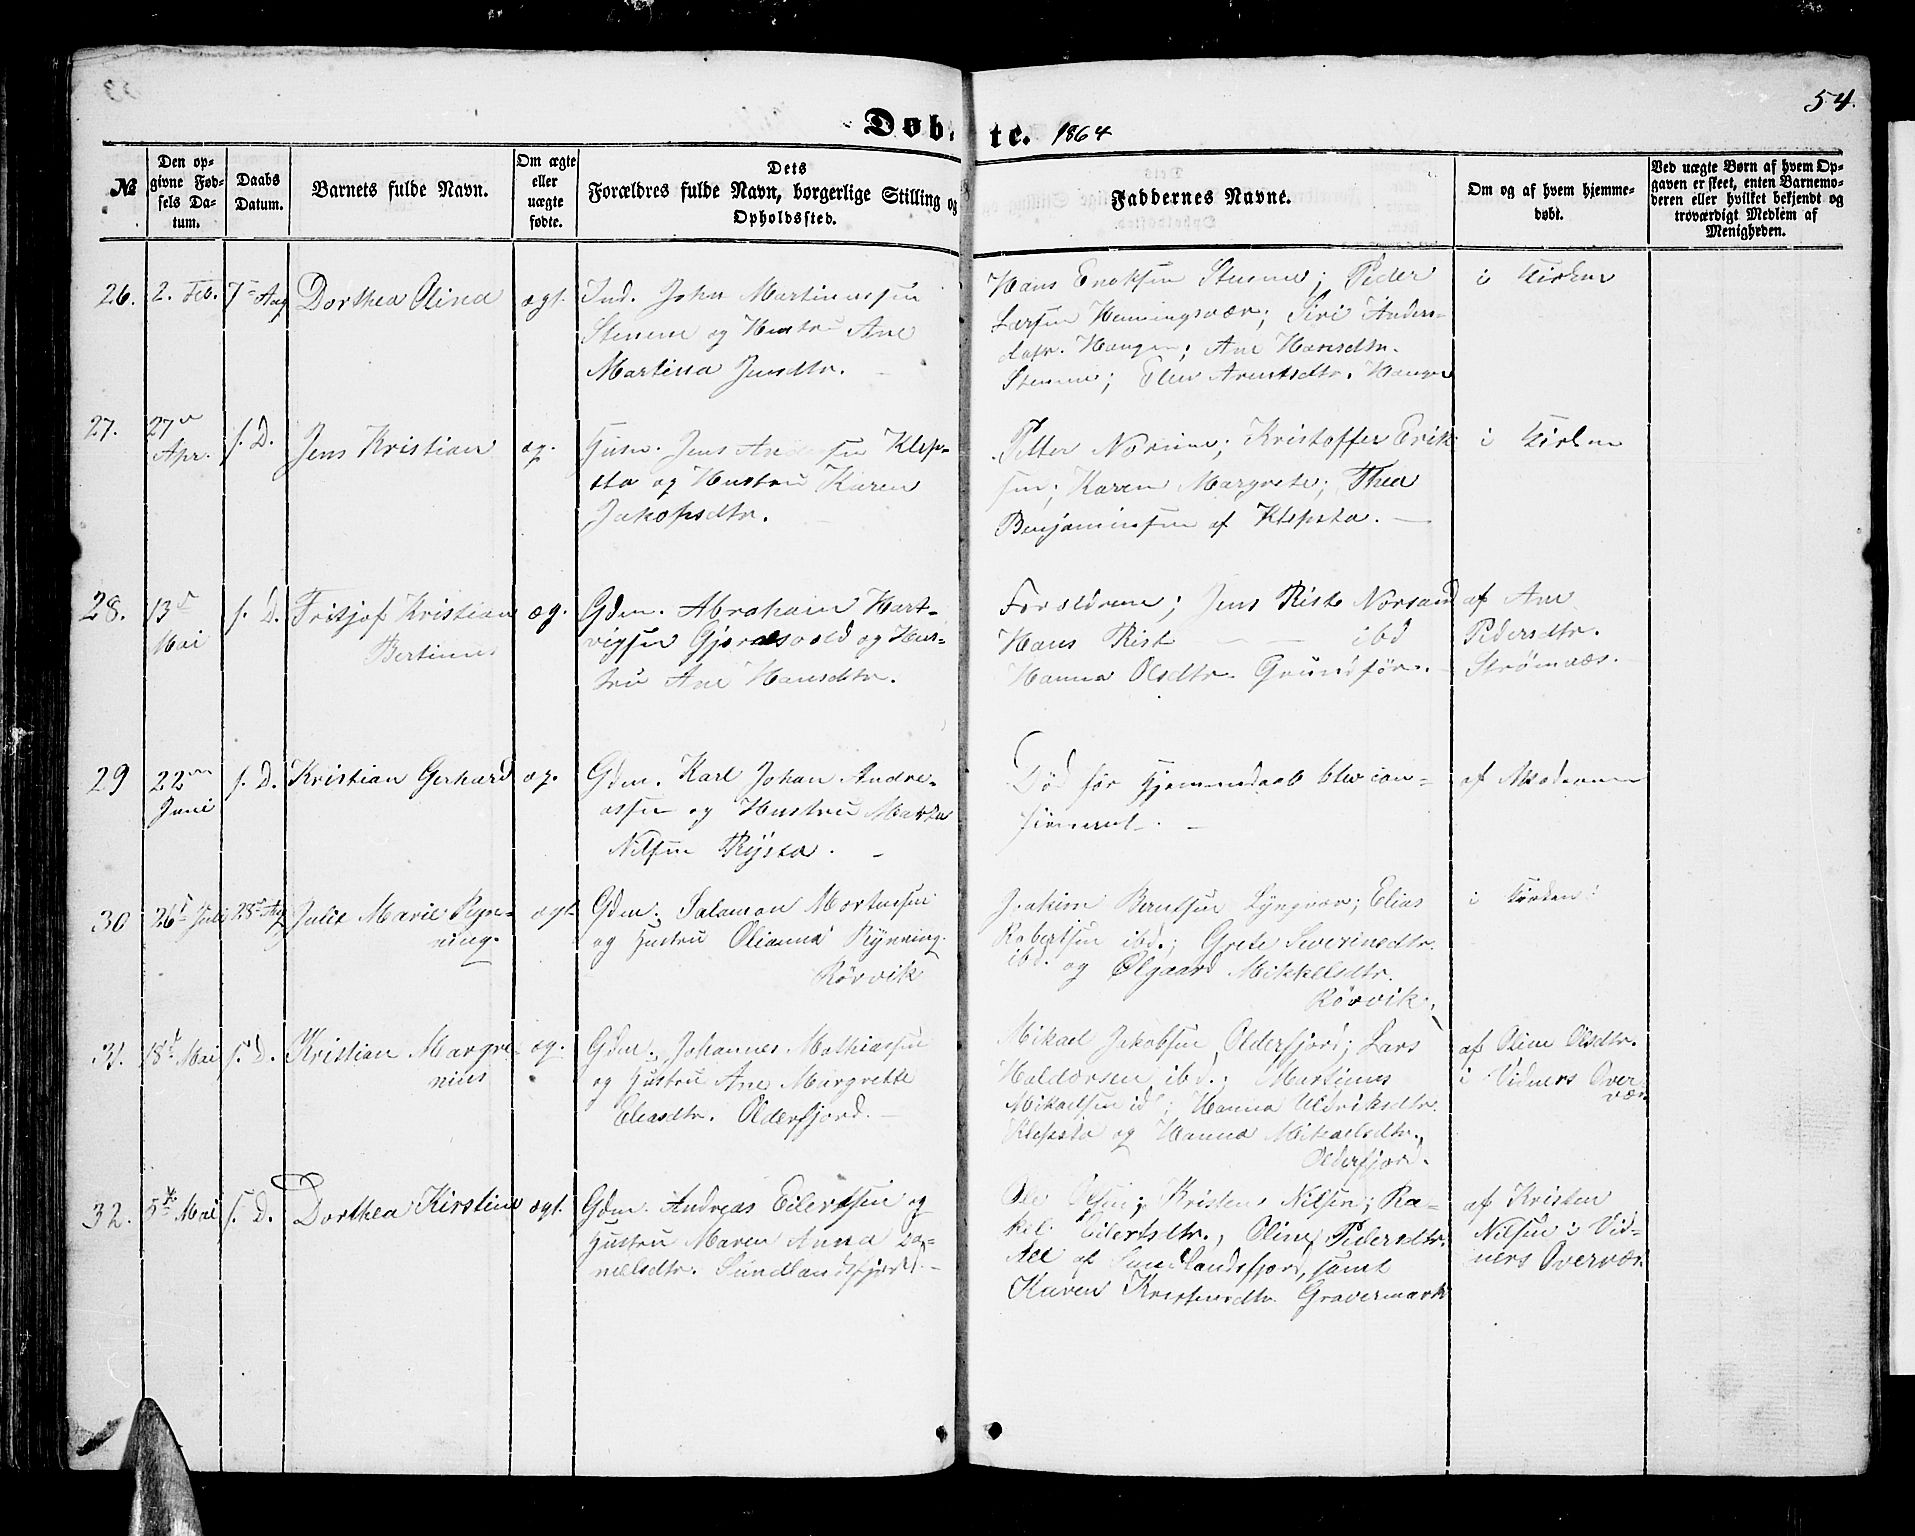 54.
Døb- te. 1864
№
Den op-
givne Fød-
sels Da-
tum.
Daabs
Datum.
Barnets fulde Navn.
Om ægte
eller
uægte
fødte.
Dets
Forældres fulde Navn, borgerlige Stilling og
Opholdssted.
Faddernes Navne.
Om og af hvem hjemme-
døbt.
Ved uægte Børn af hvem Op-
gaven er skeet, enten Barnemo-
deren eller hvilket bekjendt og
troværdigt Medlem af
Menigheden.
26. 2. Feb. 7 Aug Dorthea Olina ægt. Ind. John Martinussen
Stemme og Hustru Ane
Martina Jensdtr.
Hans Enoksen Stemme; Peder
Larsen Henningsvær; Siri Anders-
datr. Haugen; Ane Hansdtr.
Stemme; Elen Arentsdtr. Haugen
i Kirken
27. 27 Apr. s. D. Jens Kristian æg. Husm. Jens Andersen Klep-
sta og Hustru Karen
Jakobsdtr.
Petter Norum; Kristoffer Erik-
sen; Karen Margrete; Thea
Benjaminsen af Klepsta.
i Kirken
28. 13 Mai s. D. Fritjof Kristian
Bertinus
æg. Gdm. Abraham Hart-
vigsen Gjerdesvold og Hus-
tru Ane Hansdtr.
Forældrene; Jens Rist Norsand
Hans Rist ibd
Hanna Olsdtr. Grundfør.
af Ane
Pedersdtr.
Strømnæs.
29 22 Juni s. D. Kristian Gerhard æg. Gdm. Karl Johan Andre-
assen og Hustru Marta
Nilsen Rysta.
Død før Hjemmedaab blev con-
firmeret.
af Moderen
30 26 Juli 28 Aug Julie Marie Ryn-
ning.
ægt. Gdm. Salamon Mortensen
og Hustru Olianna Rynning
Rørvik
Joakim Berntsen Lyngvær; Elias
Robertsen ibd.; Grete Severinsdtr.
ibd. og Olgaard Mikkelsdtr.
Rørvik.
i Kirken
31. 18 Mai s. D. Kristian Margre-
nius
æg. Gdm. Johannes Mathiassen
og Hustru Ane Margrethe
Eliasdtr. Olderfjord.
Mikael Jakobsen Olderfjord; Lars
Haldorsen ibd.; Martinus
Mikaelsen id; Hanna Uldriksdtr.
Klepsta og Hanna Mikaelsdtr.
Olderfjord.
af Oline Olsdtr.
i Vidners Over
vær.
32. 5 Mai s. D. Dorthea Kirstine ægt. Gdm. Andreas Eilertsen og
Hustru Maren Anna Da-
nielsdtr. Sundlandsfjord.
Ole Olsen; Kristen Nilsen; Ra-
kel Eilertsdtr., Oline Pedersdtr.
Alle af Sundlandsfjord, samt
Karen Kristensdtr. Gravermark
af Kristen
Nilsen i Vid-
ners Overvær